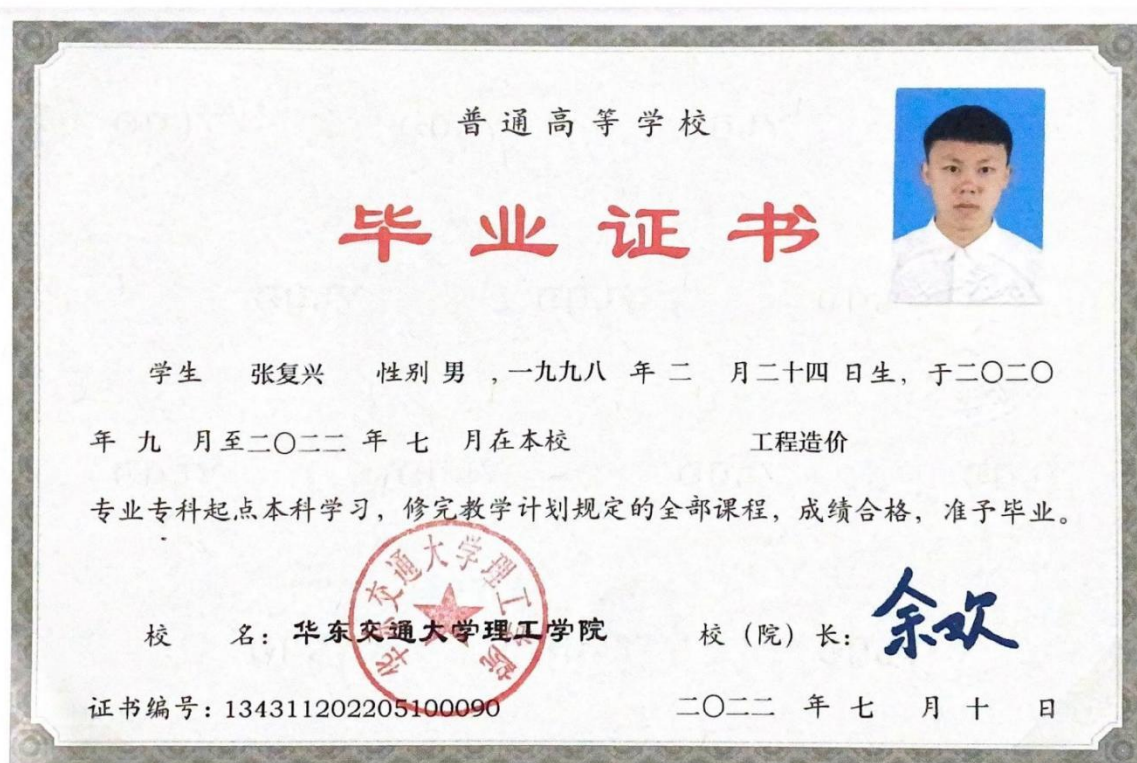 普通高等学校
毕业证书
学生 张复兴 性别 男 ,一九九八 年 二 月二十四 日生, 于二〇二〇
年 九 月至二〇二二 年 七 月在本校 工程造价
专业专科起点本科学习, 修完教学计划规定的全部课程, 成绩合格, 准予毕业。
华东交通大学理工学院
校 名: 华东交通大学理工学院 校 (院) 长: 余欢
证书编号: 134311202205100090 二〇二二 年 七 月 十 日